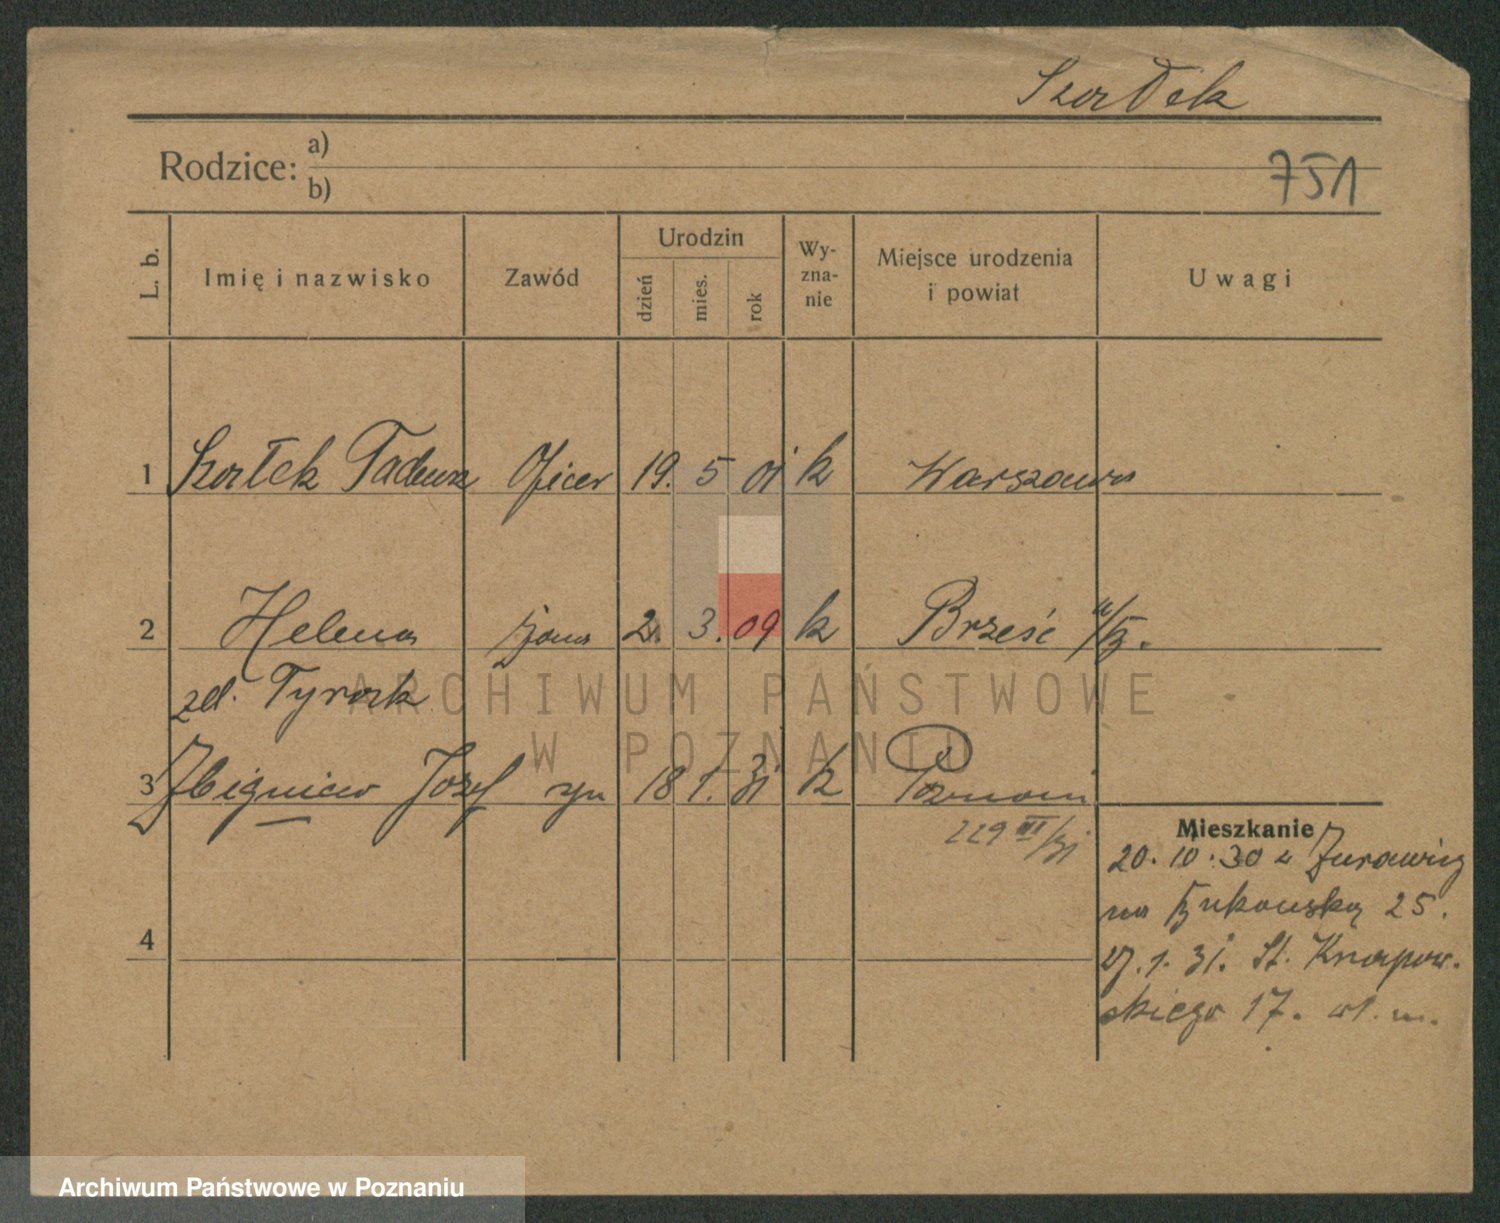 Szortek
Rodzice: a)
b)
751
L. b. Imię i nazwisko Zawód Urodzin dzień mies. rok Wy-zna-nie Miejsce urodzenia i powiat Uwagi
1 Szortek Tadeusz Oficer 19. 5 01 k Warszawa
2 Helena żona 2. 3. 09 k Brześć n/B.
zd. Tyrack
3 Zbigniew Józef syn 18 1. 31 k Poznań
229 III/31
Mieszkanie
20. 10. 30 z Żurawiej
na Bukowską 25.
4
27. 1. 31. St. Knapow-
skiego 17. wł. m.
ARCHIWUM PAŃSTWOWE
W POZNANIU
Archiwum Państwowe w Poznaniu